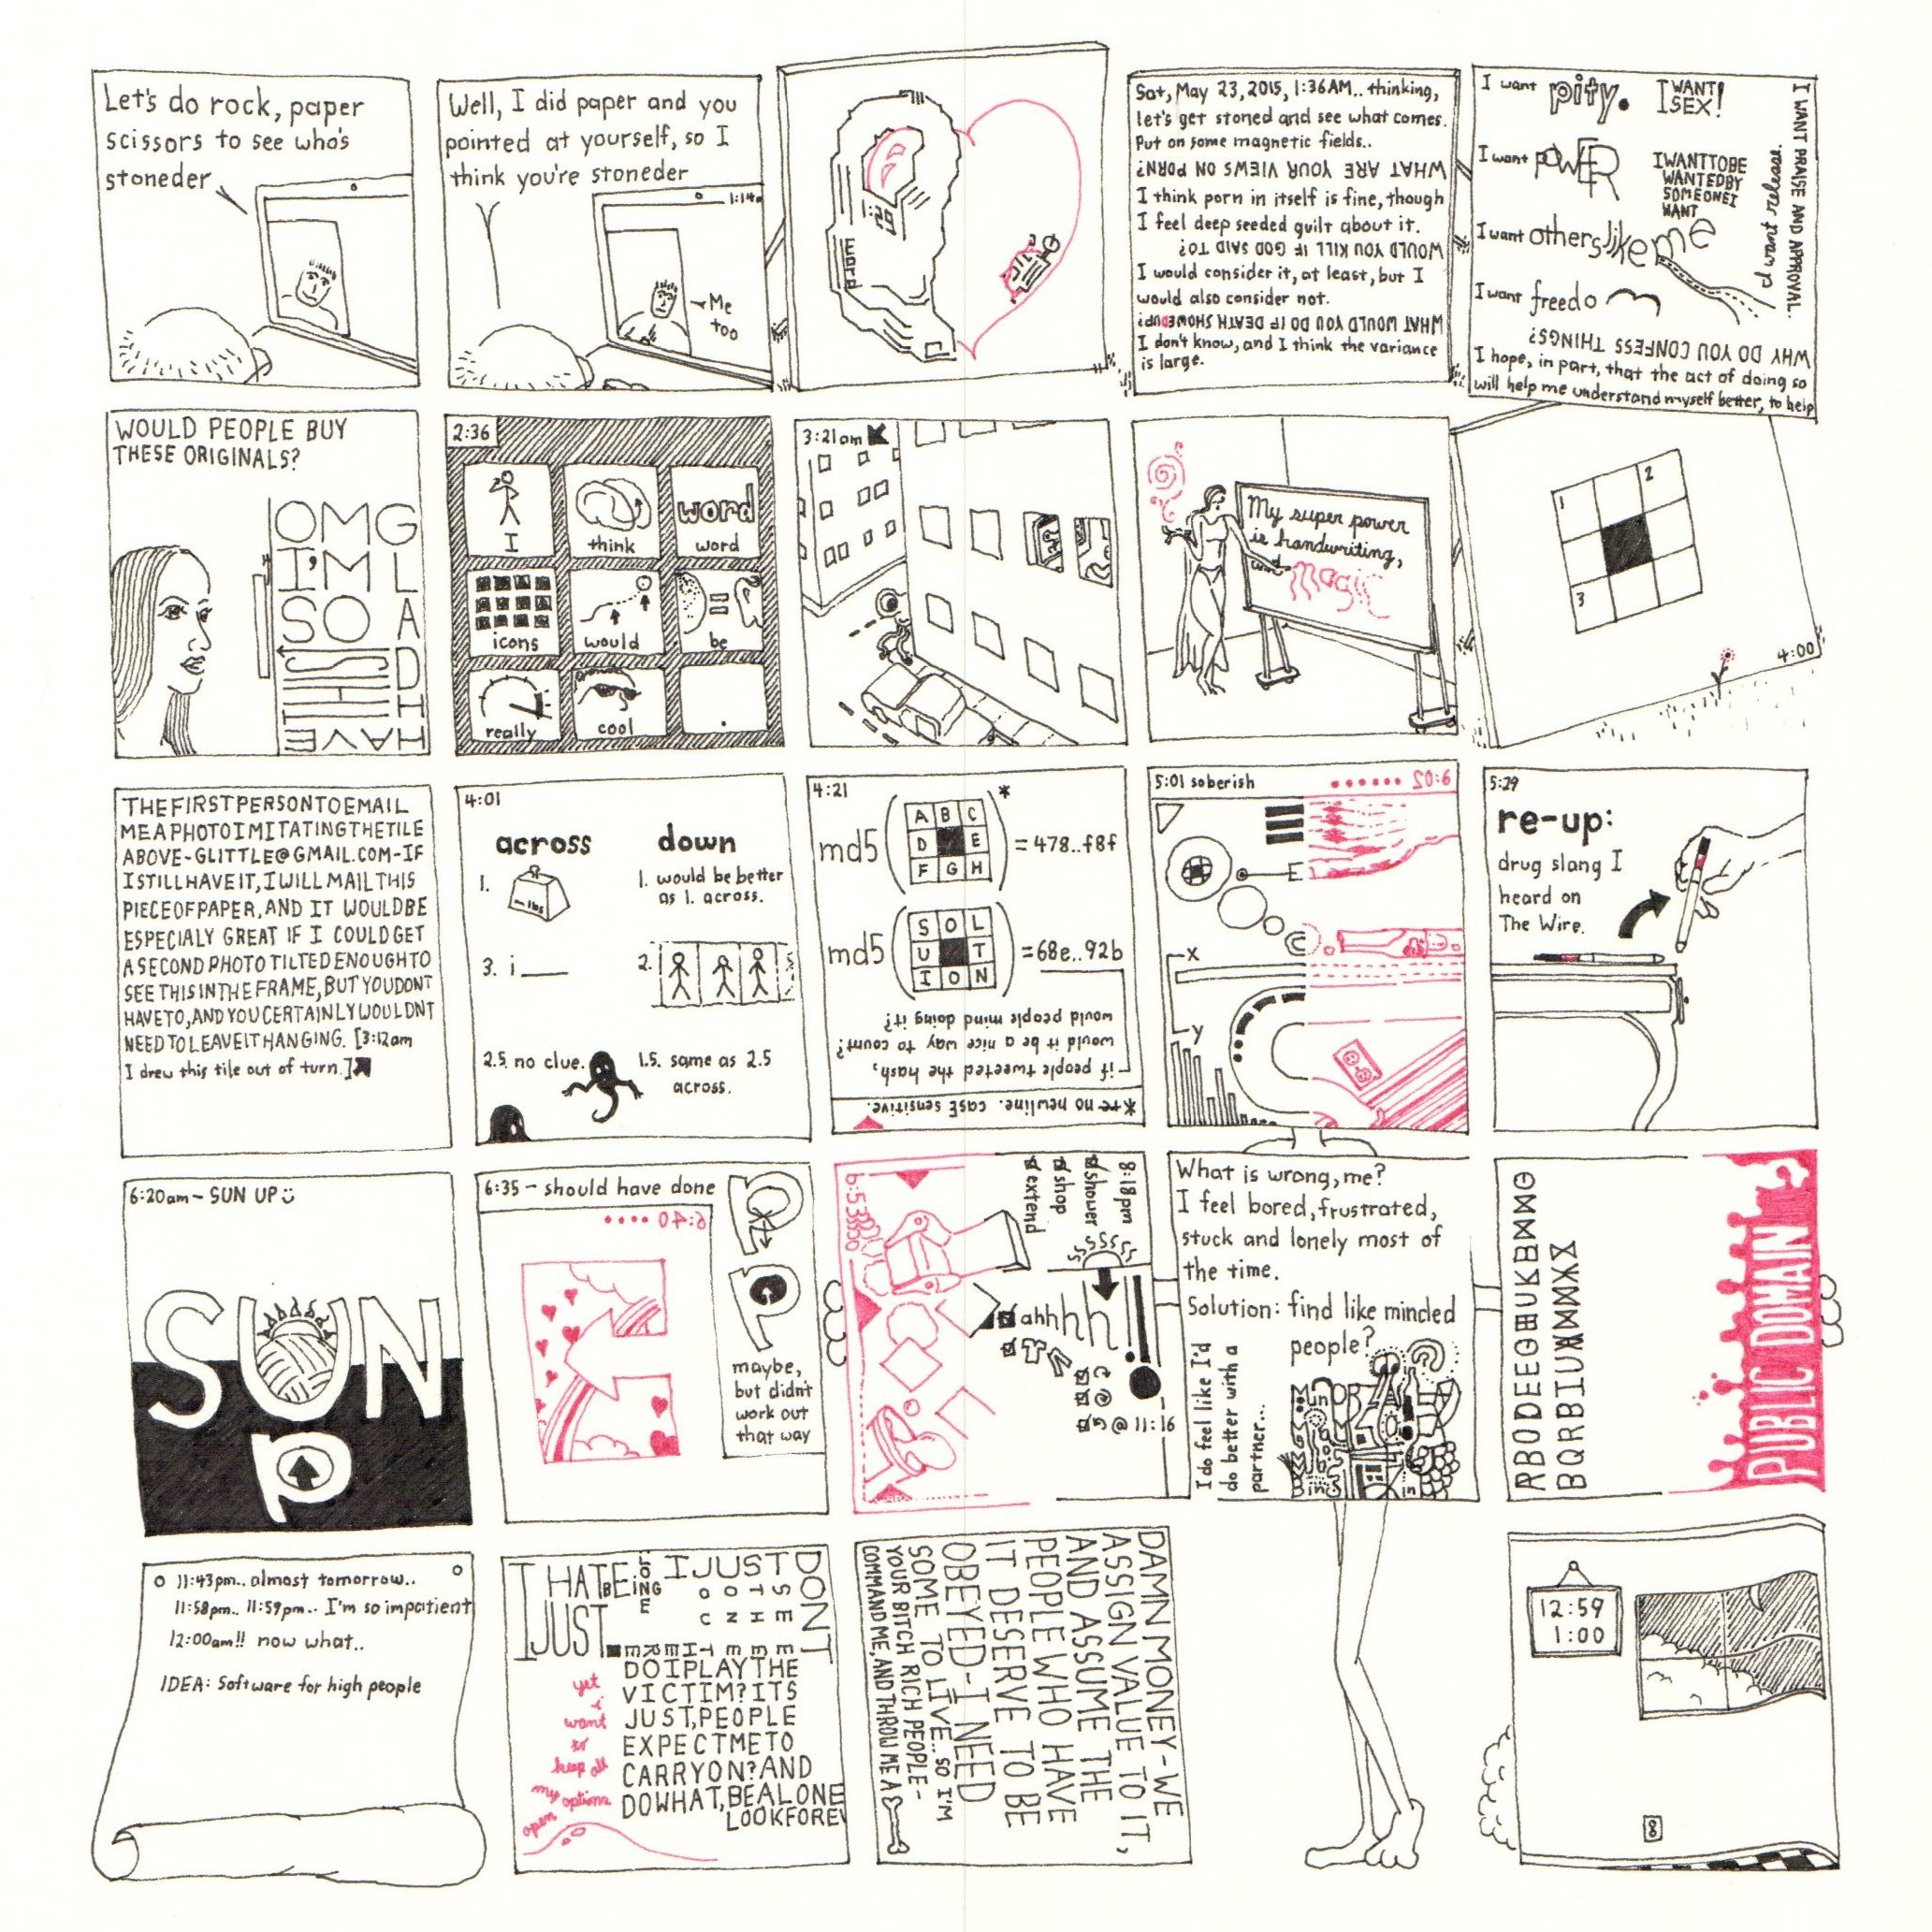 Let's do rock, paper
scissors to see who's
stoneder
Well, I did paper and you
pointed at yourself, so I
think you're stoneder
1:14
Me
too
1:29
word
Sat, May 23, 2015, 1:36AM.. thinking,
let's get stoned and see what comes.
Put on some magnetic fields..
WHAT ARE YOUR VIEWS ON PORN?
I think porn in itself is fine, though
I feel deep seeded guilt about it.
WOULD YOU KILL IF GOD SAID TO?
I would consider it, at least, but I
would also consider not.
WHAT WOULD YOU DO IF DEATH SHOWED UP?
I don't know, and I think the variance
is large.
I want pity.
I WANT
SEX!
I want POWER
IWANTTOBE
WANTEDBY
SOMEONEI
WANT
I want others like me
I want freedom
I want release.
I WANT PRAISE AND APPROVAL.
WHY DO YOU CONFESS THINGS?
I hope, in part, that the act of doing so
will help me understand myself better, to help
WOULD PEOPLE BUY
THESE ORIGINALS?
OMG
I'M
SO
HIGH
LAD
HAVE
2:36
I
think
word
word
icons
would
be
really
cool
.
3:21am
My super power
is handwriting,
and magic
1
2
3
4:00
THEFIRSTPERSONTOEMAIL
MEAPHOTOIMITATINGTHETILE
ABOVE-GLITTLE@GMAIL.COM-IF
ISTILLHAVEIT, IWILLMAILTHIS
PIECEOFPAPER, AND IT WOULDBE
ESPECIALY GREAT IF I COULDGET
ASECOND PHOTO TILTED ENOUGHTO
SEE THISINTHEFRAME, BUT YOUDONT
HAVETO, AND YOU CERTAINLY WOULDNT
NEEDTOLEAVEITHANGING. [3:12am
I drew this tile out of turn.]
4:01
across
down
1.
lbs
1. would be better
as 1. across.
3. i
2.
2.5. no clue.
1.5. same as 2.5
across.
4:21
md5 ( A B C
D E
F G H )* = 478..f8f
md5 ( S O L
U T
I O N ) = 68e..92b
if people tweeted the hash,
would it be a nice way to count?
would people mind doing it?
*re no newline. casE sensitive.
5:01 soberish
6:02
E
x
y
5:29
re-up:
drug slang I
heard on
The Wire.
6:20am - SUN UP
SUN
p
6:35 - should have done
6:40
maybe,
but didn't
work out
that way
8:18pm
shower
shop
extend
ahhhhh
@ 11:16
What is wrong, me?
I feel bored, frustrated,
stuck and lonely most of
the time.
Solution: find like minded
people?
I do feel like I'd
do better with a
partner...
PUBLIC DOMAIN
11:43pm.. almost tomorrow..
11:58pm.. 11:59pm.. I'm so impatient
12:00am!! now what..
IDEA: Software for high people
I HATE
BEING
ALONE
I JUST
DONT
SEE
THE
I JUST
DOIPLAYTHE
VICTIM?ITS
JUST,PEOPLE
EXPECTMETO
CARRYON?AND
DOWHAT,BEALONE
LOOKFOREV
yet
i
want
to
keep all
my options
open
DAMN MONEY-WE
ASSIGN VALUE TO IT,
AND ASSUME THE
PEOPLE WHO HAVE
IT DESERVE TO BE
OBEYED-I NEED
SOME TO LIVE.. SO I'M
YOUR BITCH RICH PEOPLE-
COMMAND ME, AND THROW ME A
12:59
1:00